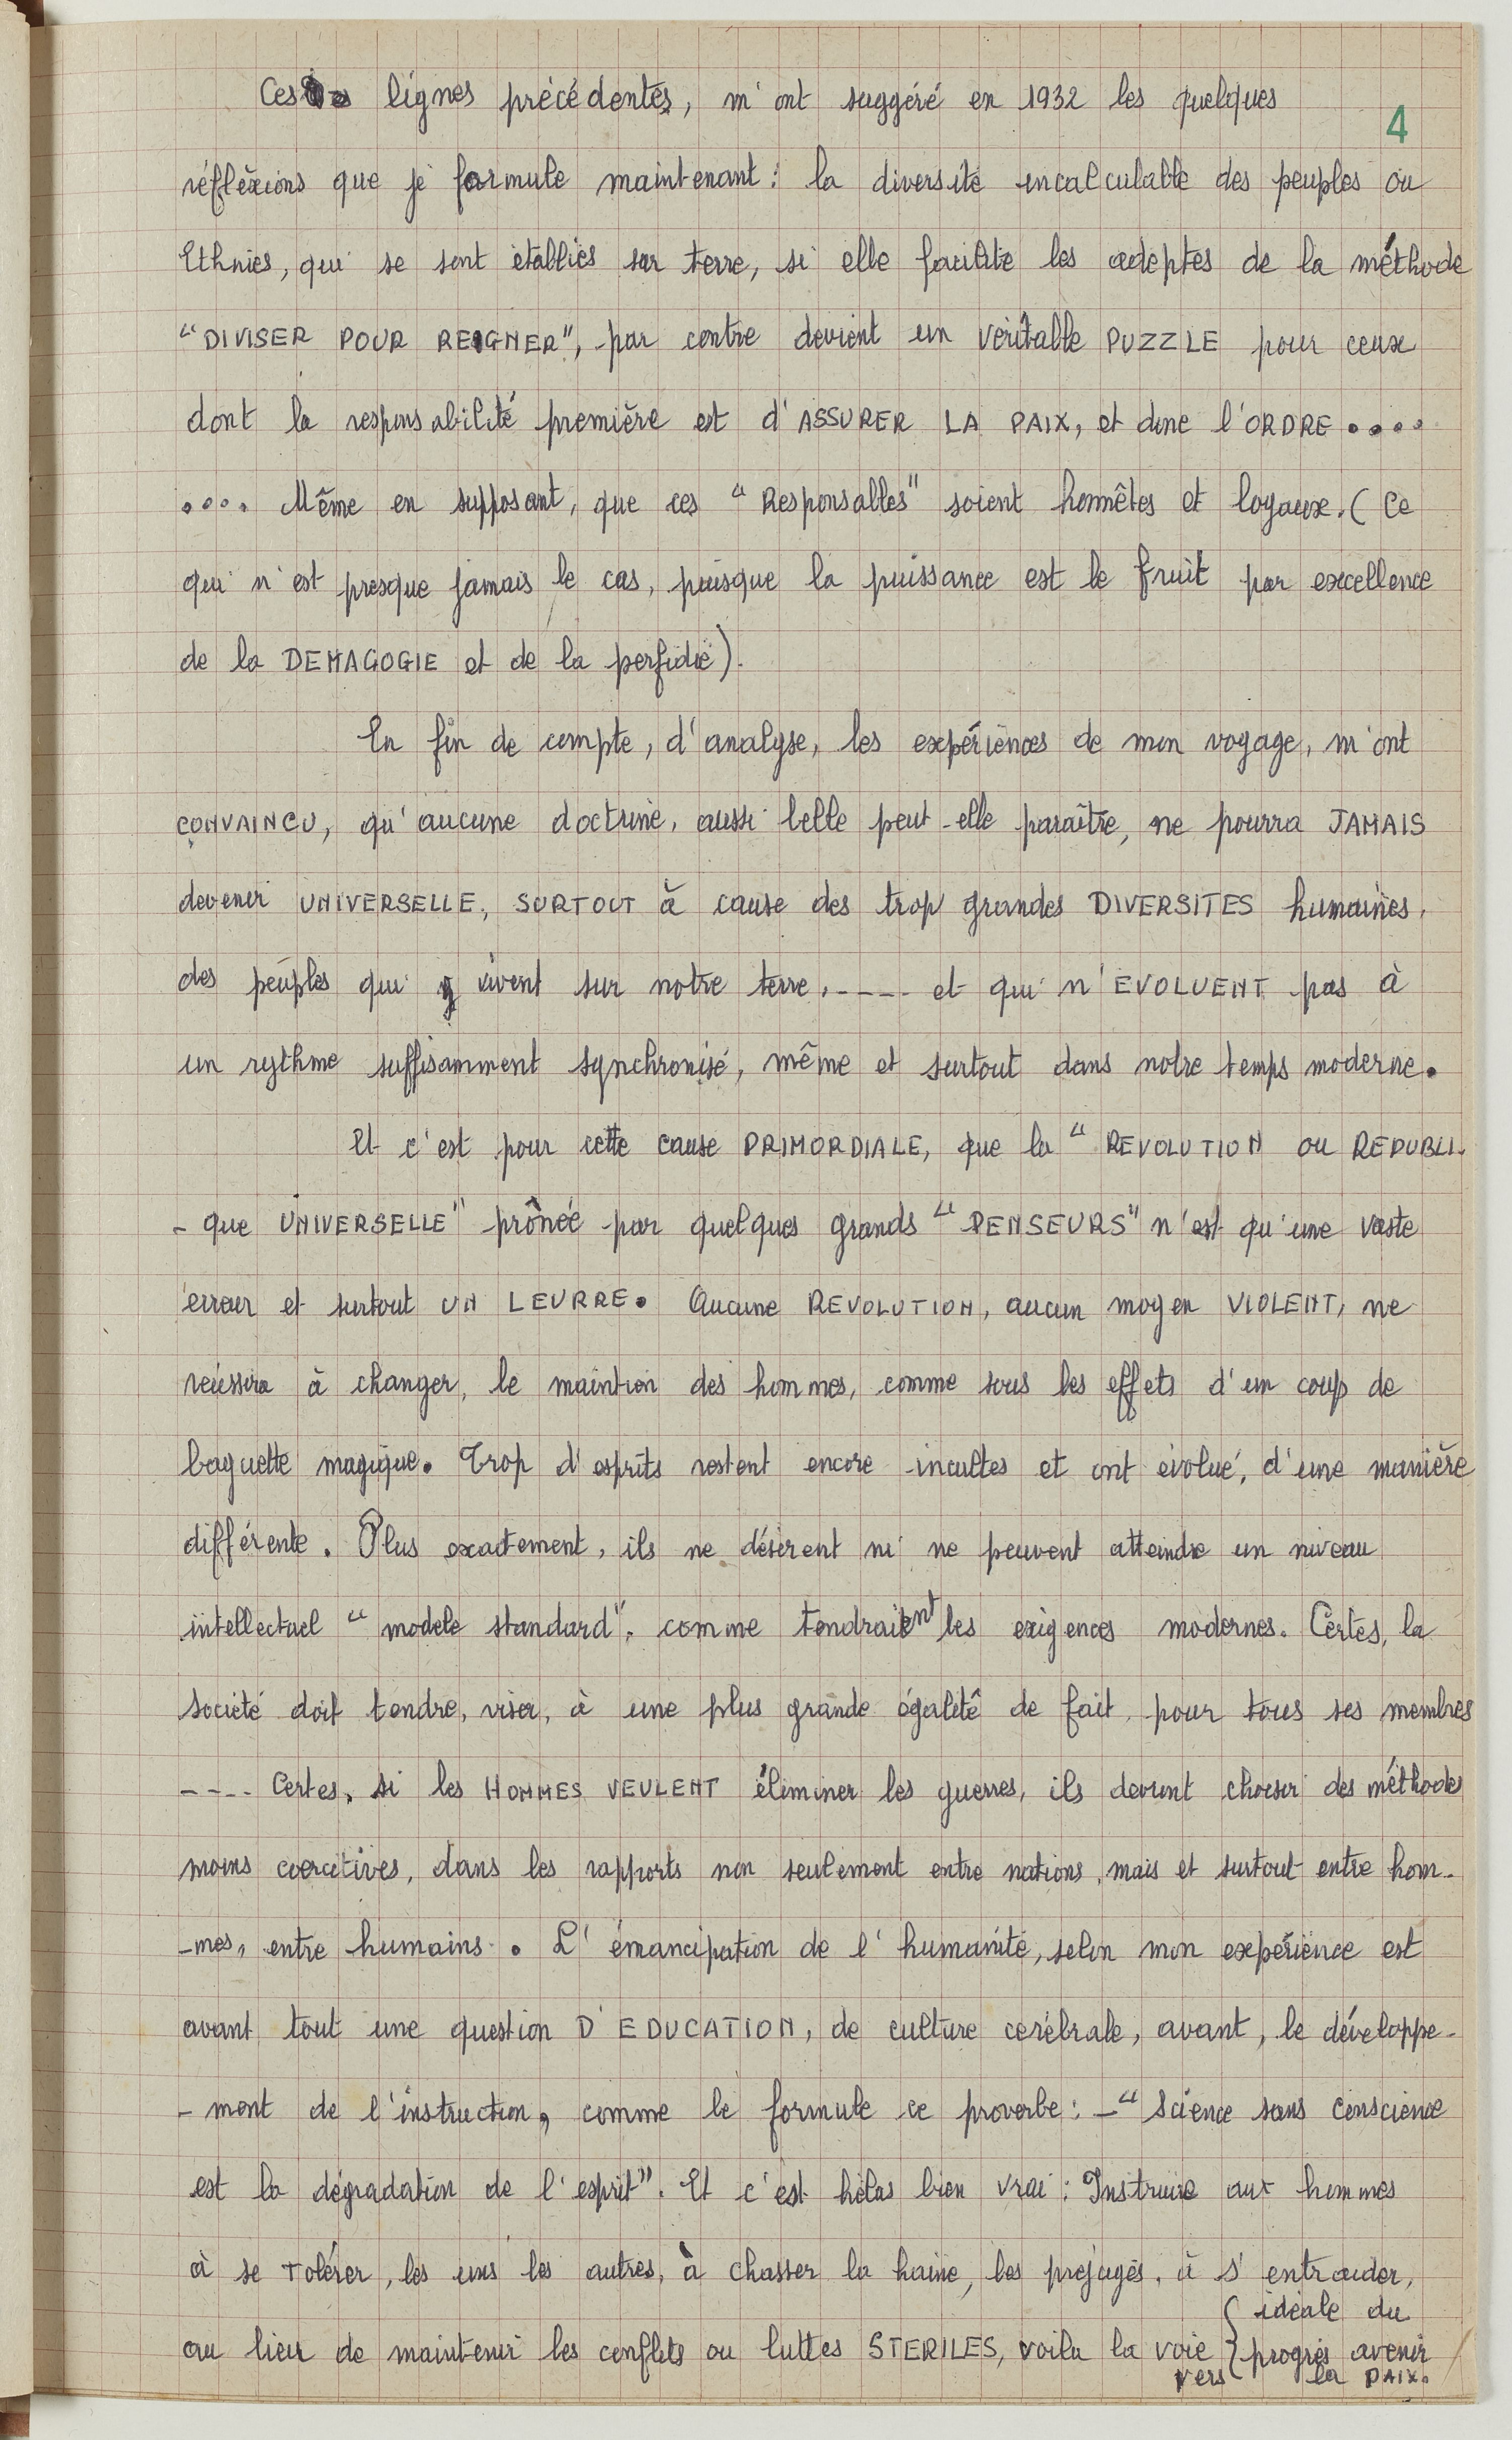 Ces lignes précédentes, m'ont suggéré en 1932 les quelques
4
réflexions que je formule maintenant : la diversité incalculable des peuples ou
Ethnies, qui se sont établies sur terre, si elle facilite les adeptes de la méthode
"DIVISER POUR REIGNER", par contre devient un véritable PUZZLE pour ceux
dont la responsabilité première est d'ASSURER LA PAIX, et donc l'ORDRE....
.... Même en supposant, que ces "Responsables" soient honnêtes et loyaux. (Ce
qui n'est presque jamais le cas, puisque la puissance est le fruit par excellence
de la DEMAGOGIE et de la perfidie).
En fin de compte, d'analyse, les expériences de mon voyage, m'ont
CONVAINCU, qu'aucune doctrine, aussi belle peut-elle paraître, ne pourra JAMAIS
devenir UNIVERSELLE, SURTOUT à cause des trop grandes DIVERSITES humaines,
des peuples qui y vivent sur notre terre, ---- et qui n'EVOLUENT pas à
un rythme suffisamment synchronisé, même et surtout dans notre temps moderne.
Et c'est pour cette cause PRIMORDIALE, que la "REVOLUTION ou REPUBLI-
-que UNIVERSELLE" prônée par quelques grands "PENSEURS" n'est qu'une vaste
erreur et surtout UN LEURRE. Aucune REVOLUTION, aucun moyen VIOLENT, ne
réussira à changer, le maintien des hommes, comme sous les effets d'un coup de
baguette magique. Trop d'esprits restent encore incultes et ont évolué, d'une manière
différente. Plus exactement, ils ne désirent ni ne peuvent atteindre un niveau
intellectuel "modèle standard", comme tendraient les exigences modernes. Certes, la
société doit tendre, viser, à une plus grande égalité de fait pour tous ses membres
---- Certes, si les HOMMES VEULENT éliminer les guerres, ils devront choisir des méthodes
moins coercitives, dans les rapports non seulement entre nations, mais et surtout entre hom-
-mes, entre humains. L'émancipation de l'humanité, selon mon expérience est
avant tout une question D'EDUCATION, de culture cérébrale, avant, le développe-
-ment de l'instruction, comme le formule ce proverbe : -"Science sans conscience
est la dégradation de l'esprit". Et c'est hélas bien vrai : Instruire aux hommes
à se Tolérer, les uns les autres, à chasser la haine, les préjugés, à S'entraider,
au lieu de maintenir les conflits ou luttes STERILES, voila la voie { idéale du
progrès avenir
vers la PAIX.